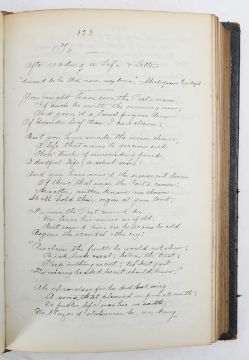 323
To ——
After reading a Life & Letters
"Cursed be he that moves my bones." Shakespeare's Epitaph
You might have won the Poet's name,
If such be worth the winning now,
And gain'd a laurel for your brow
Of sounder leaf than I can claim;
But you have made the wiser choice,
A life that moves to gracious ends
Thro' troops of unrecording friends,
A deedful life, a silent voice:
And you have miss'd the irreverent doom
Of those that wear the Poet's crown:
Hereafter, neither knave nor clown
Shall hold their orgies at your tomb.
For now the Poet cannot die,
Nor leave his music as of old,
But round him ere he scarce be cold
Begins the scandal & the cry:
"Proclaim the faults he would not show:
Break lock & seal: betray the trust:
Keep nothing sacred: 'tis but just
The many-headed beast should know."
Ah shameless! for he did but sing
A song that pleased us from its worth;
No public life was his on earth,
No blazon'd statesman he, nor king.